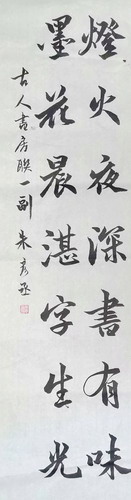 燈火夜深書有味
墨花晨湛字生光
古人書房聯一副 朱彥丞